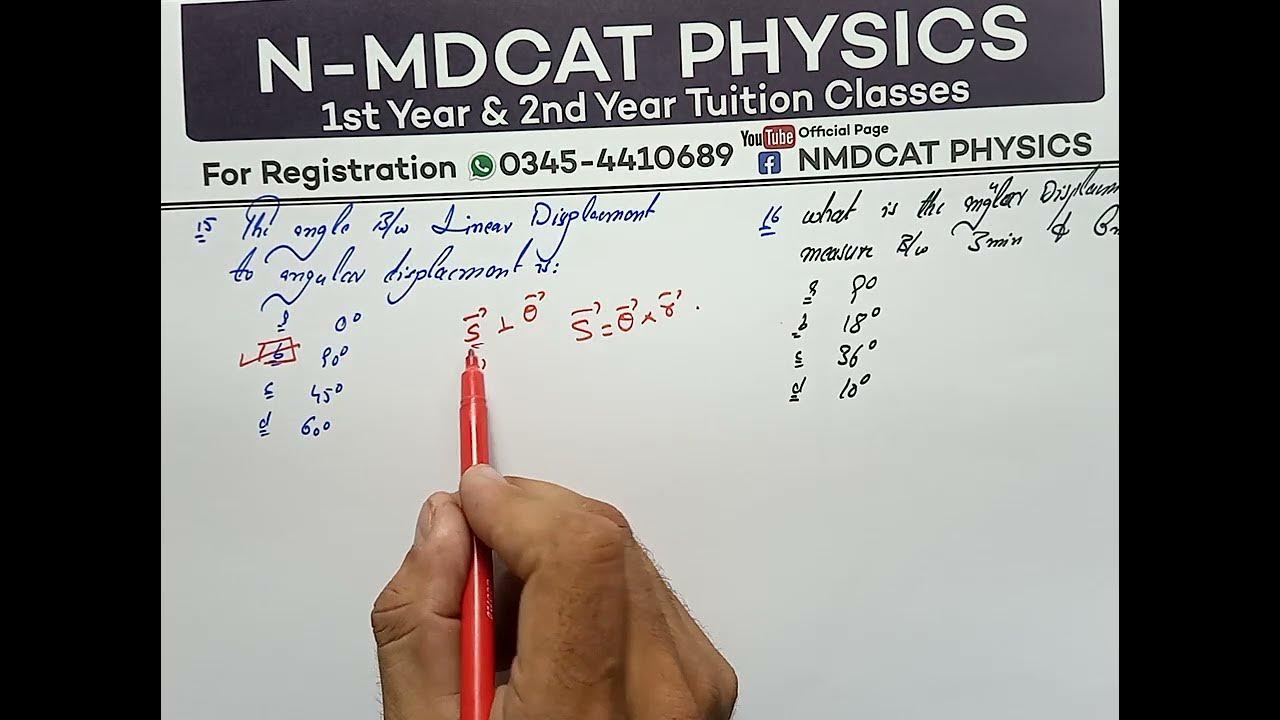 N-MDCAT PHYSICS
1st Year & 2nd Year Tuition Classes
For Registration 0345-4410689
YouTube Official Page
NMDCAT PHYSICS
15 The angle B/w Linear Displacment
to angular displacment is:
a 0°
b 90°
c 45°
d 60°
S⃗ ⊥ θ⃗ S⃗ = θ⃗ × r⃗ .
16 what is the angular Displacm
measure B/w 3min &
a 9°
b 18°
c 36°
d 10°